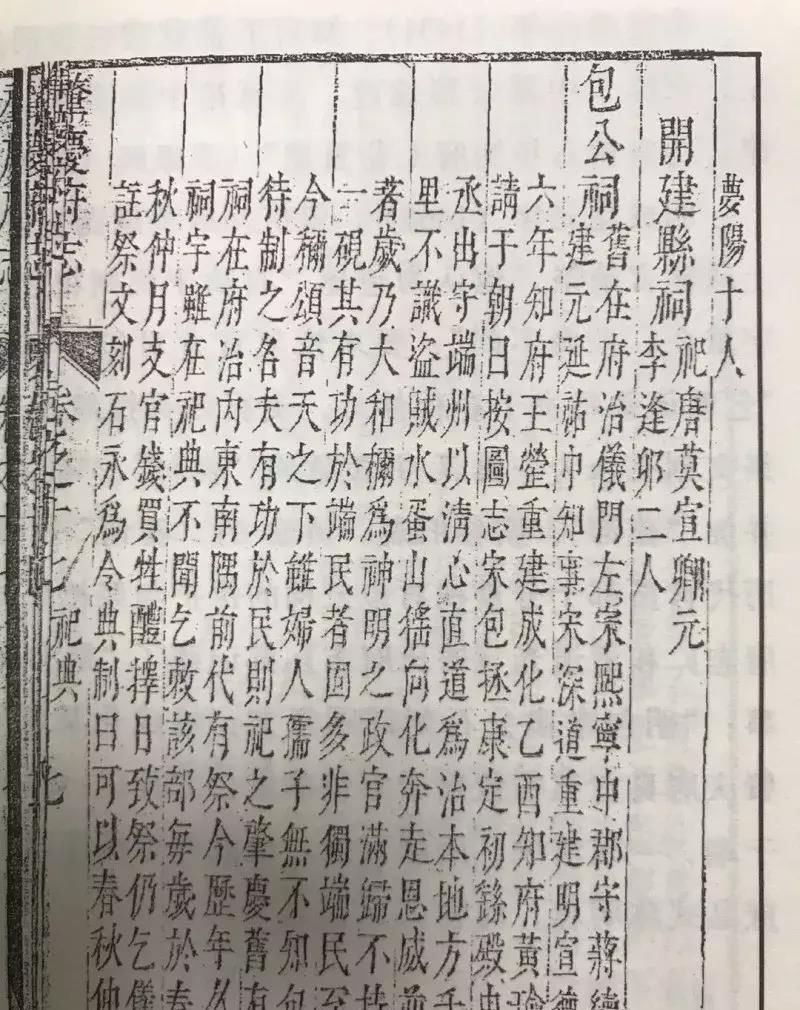 夢陽十人
開建縣祠
祀唐莫宣卿元
李逢郊二人
包公祠
舊在府治儀門左宋熙寧中郡守蔣
建元延祐中知事宋深道重建明宣德
六年知府王罃重建成化乙酉知府黃瑜
請于朝曰按圖志宋包拯康定初繇殿中
丞出守端州以清心直道爲治本地方千
里不識盜賊水蛋山徭向化奔走恩威並
著歲乃大和穪爲神明之政官滿歸不持
一硯其有功於端民者固多非獨端民至
今穪頌音天之下雖婦人孺子無不知包
待制之名夫有功於民則祀之肇慶舊有
祠在府治內東南隅前代有祭今歷年久
祠宇雖在祀典不聞乞敕該部每歲於春
秋仲月支官錢買牲醴擇日致祭仍乞儀
註祭文刻石永爲令典制曰可以春秋仲
肇慶府志
卷之十七 祀典 七